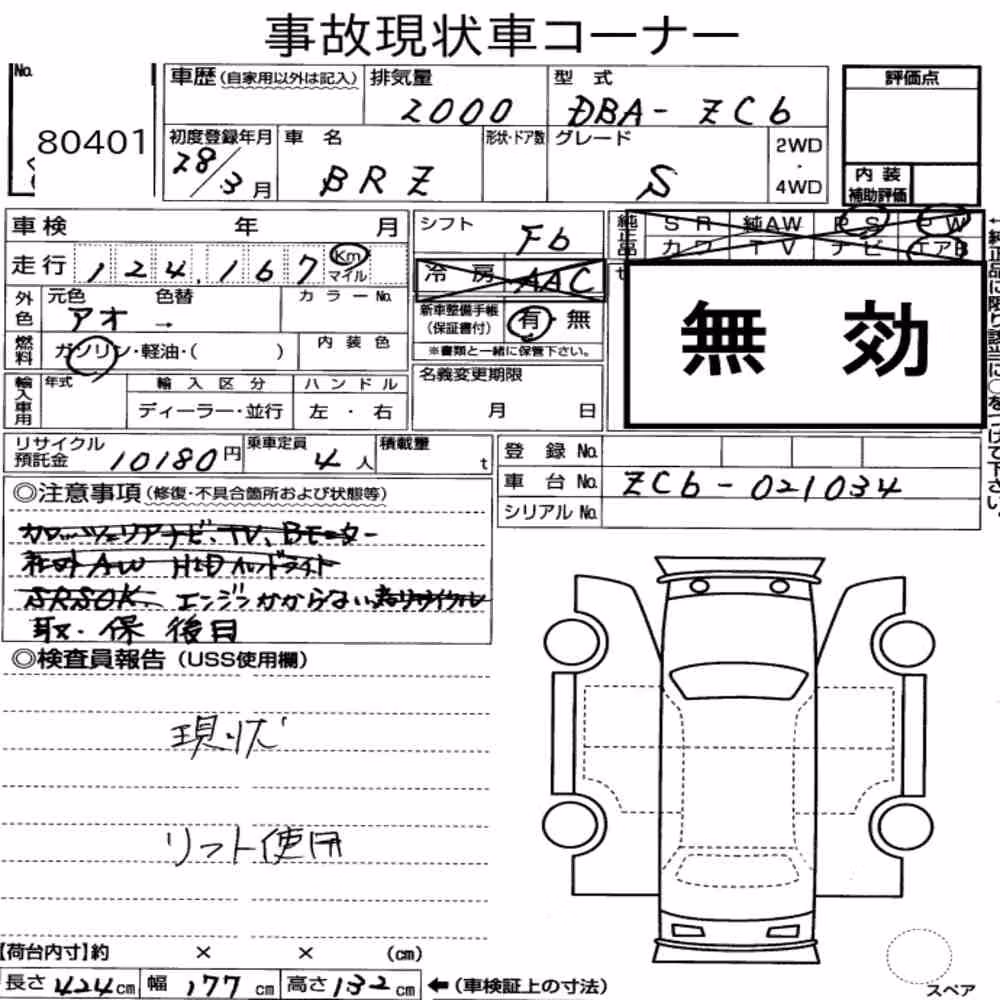 事故現状車コーナー
No. 80401
車歴(自家用以外は記入) 排気量 2000 型式 DBA- ZC6 評価点
初度登録年月 28/3月 車名 BRZ 形状・ドア数 グレード S 2WD・4WD
内装補助評価
車検 年 月 シフト F6 純正品 SR 純AW PS PW
カワ TV ナビ エアB
走行 124,167 Km マイル 冷房 AAC
外色 元色 アオ 色替 → カラーNo. 新車整備手帳(保証書付) 有・無
※書類と一緒に保管下さい。
無効
燃料 ガソリン・軽油・( ) 内装色
輸入車用 年式 輸入区分 ハンドル 名義変更期限
ディーラー・並行 左・右 月 日
←純正品に限り該当に○をつけて下さい。
リサイクル預託金 10180円 乗車定員 4人 積載量 t 登録No.
車台No. ZC6-021034
シリアルNo.
◎注意事項(修復・不具合箇所および状態等)
カロッツェリアナビ、TV、Bモーター
社外AW HIDヘッドライト
SRSOK. エンジンかからない
取・保 後日
◎検査員報告(USS使用欄)
現状
リフト使用
【荷台内寸】約 × × (cm)
長さ 424cm 幅 177cm 高さ 132cm ←(車検証上の寸法)
スペア